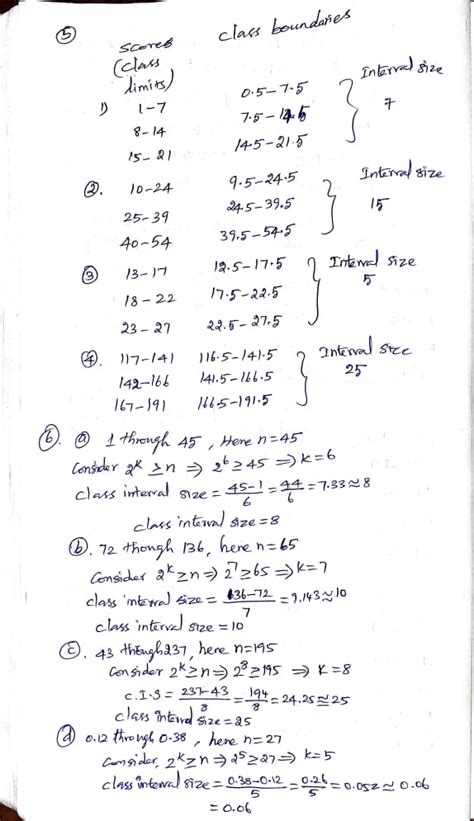 ⑤
scores class boundaries
(class
limits) Interval size
1) 1-7 0.5-7.5
8-14 7.5-14.5 7
15-21 14.5-21.5
②. 10-24 9.5-24.5 Interval size
25-39 24.5-39.5 15
40-54 39.5-54.5
③ 13-17 12.5-17.5 Interval size
18-22 17.5-22.5 5
23-27 22.5-27.5
④. 117-141 116.5-141.5 Interval size
142-166 141.5-166.5 25
167-191 166.5-191.5
⑥. ⓐ 1 through 45, Here n=45
Consider 2^k ≥ n ⇒ 2^6 ≥ 45 ⇒ k=6
class interval size = 45-1/6 = 44/6 = 7.33 ≈ 8
class interval size = 8
ⓑ. 72 though 136, here n=65
Consider 2^k ≥ n ⇒ 2^7 ≥ 65 ⇒ k=7
class interval size = 136-72/7 = 9.143 ≈ 10
class interval size = 10
ⓒ. 43 through 237, here n=195
Consider 2^k ≥ n ⇒ 2^8 ≥ 195 ⇒ k=8
C.I.S = 237-43/8 = 194/8 = 24.25 ≈ 25
class Interval size = 25
ⓓ 0.12 through 0.38, here n=27
Consider, 2^k ≥ n ⇒ 2^5 ≥ 27 ⇒ k=5
class interval size = 0.38-0.12/5 = 0.26/5 = 0.052 ≈ 0.06
= 0.06